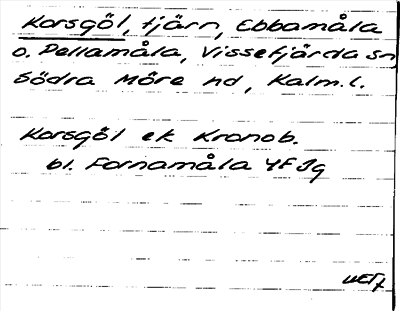 Korsgöl, tjärn, Ebbamåla
o. Pellamåla, Vissefjärda sn,
Södra Möre hd, Kalm. l.
Korsgöl ek Kronob.
bl. Fornamåla 4f Jg